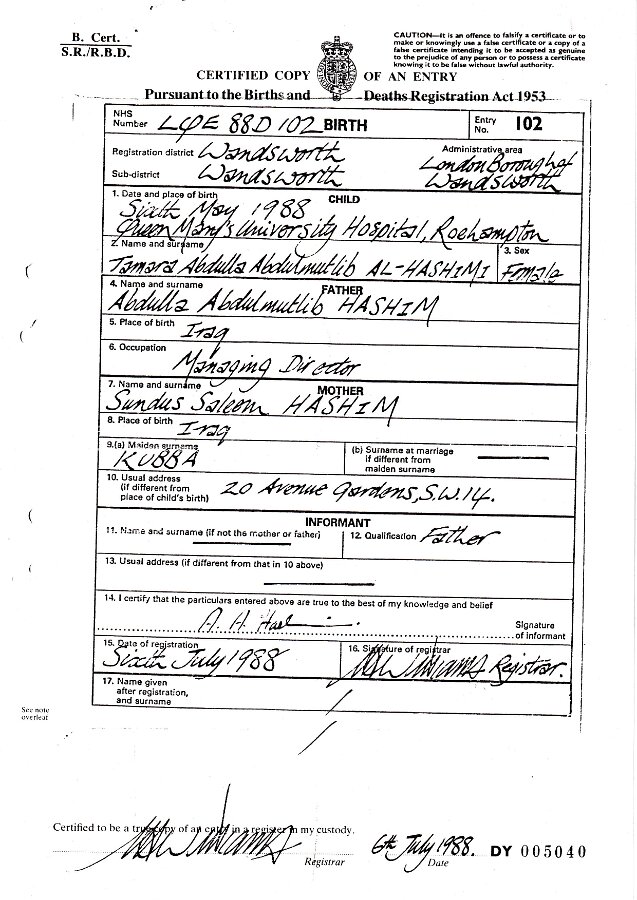 B. Cert.
S.R./R.B.D.
CAUTION—It is an offence to falsify a certificate or to
make or knowingly use a false certificate or a copy of a
false certificate intending it to be accepted as genuine
to the prejudice of any person or to possess a certificate
knowing it to be false without lawful authority.
CERTIFIED COPY OF AN ENTRY
Pursuant to the Births and Deaths Registration Act 1953
NHS
Number LQPE 88D 102 BIRTH Entry No. 102
Registration district Wandsworth Administrative area
Sub-district Wandsworth London Borough of
Wandsworth
1. Date and place of birth CHILD
Sixth May 1988
Queen Mary's University Hospital, Roehampton
2. Name and surname 3. Sex
Tamara Abdulla Abdulmutlib AL-HASHIMI Female
4. Name and surname FATHER
Abdulla Abdulmutlib HASHIM
5. Place of birth Iraq
6. Occupation Managing Director
7. Name and surname MOTHER
Sundus Saleem HASHIM
8. Place of birth Iraq
9.(a) Maiden surname (b) Surname at marriage
KUBBA if different from
maiden surname
10. Usual address
(if different from
place of child's birth) 20 Avenue Gardens, S.W.14.
INFORMANT
11. Name and surname (if not the mother or father) 12. Qualification Father
13. Usual address (if different from that in 10 above)
14. I certify that the particulars entered above are true to the best of my knowledge and belief
A. H. Signature
of informant
15. Date of registration 16. Signature of registrar
Sixth July 1988 Williams Registrar.
17. Name given
after registration,
and surname
See note
overleaf
Certified to be a true copy of an entry in a register in my custody.
Williams Registrar 6th July 1988. Date DY 005040